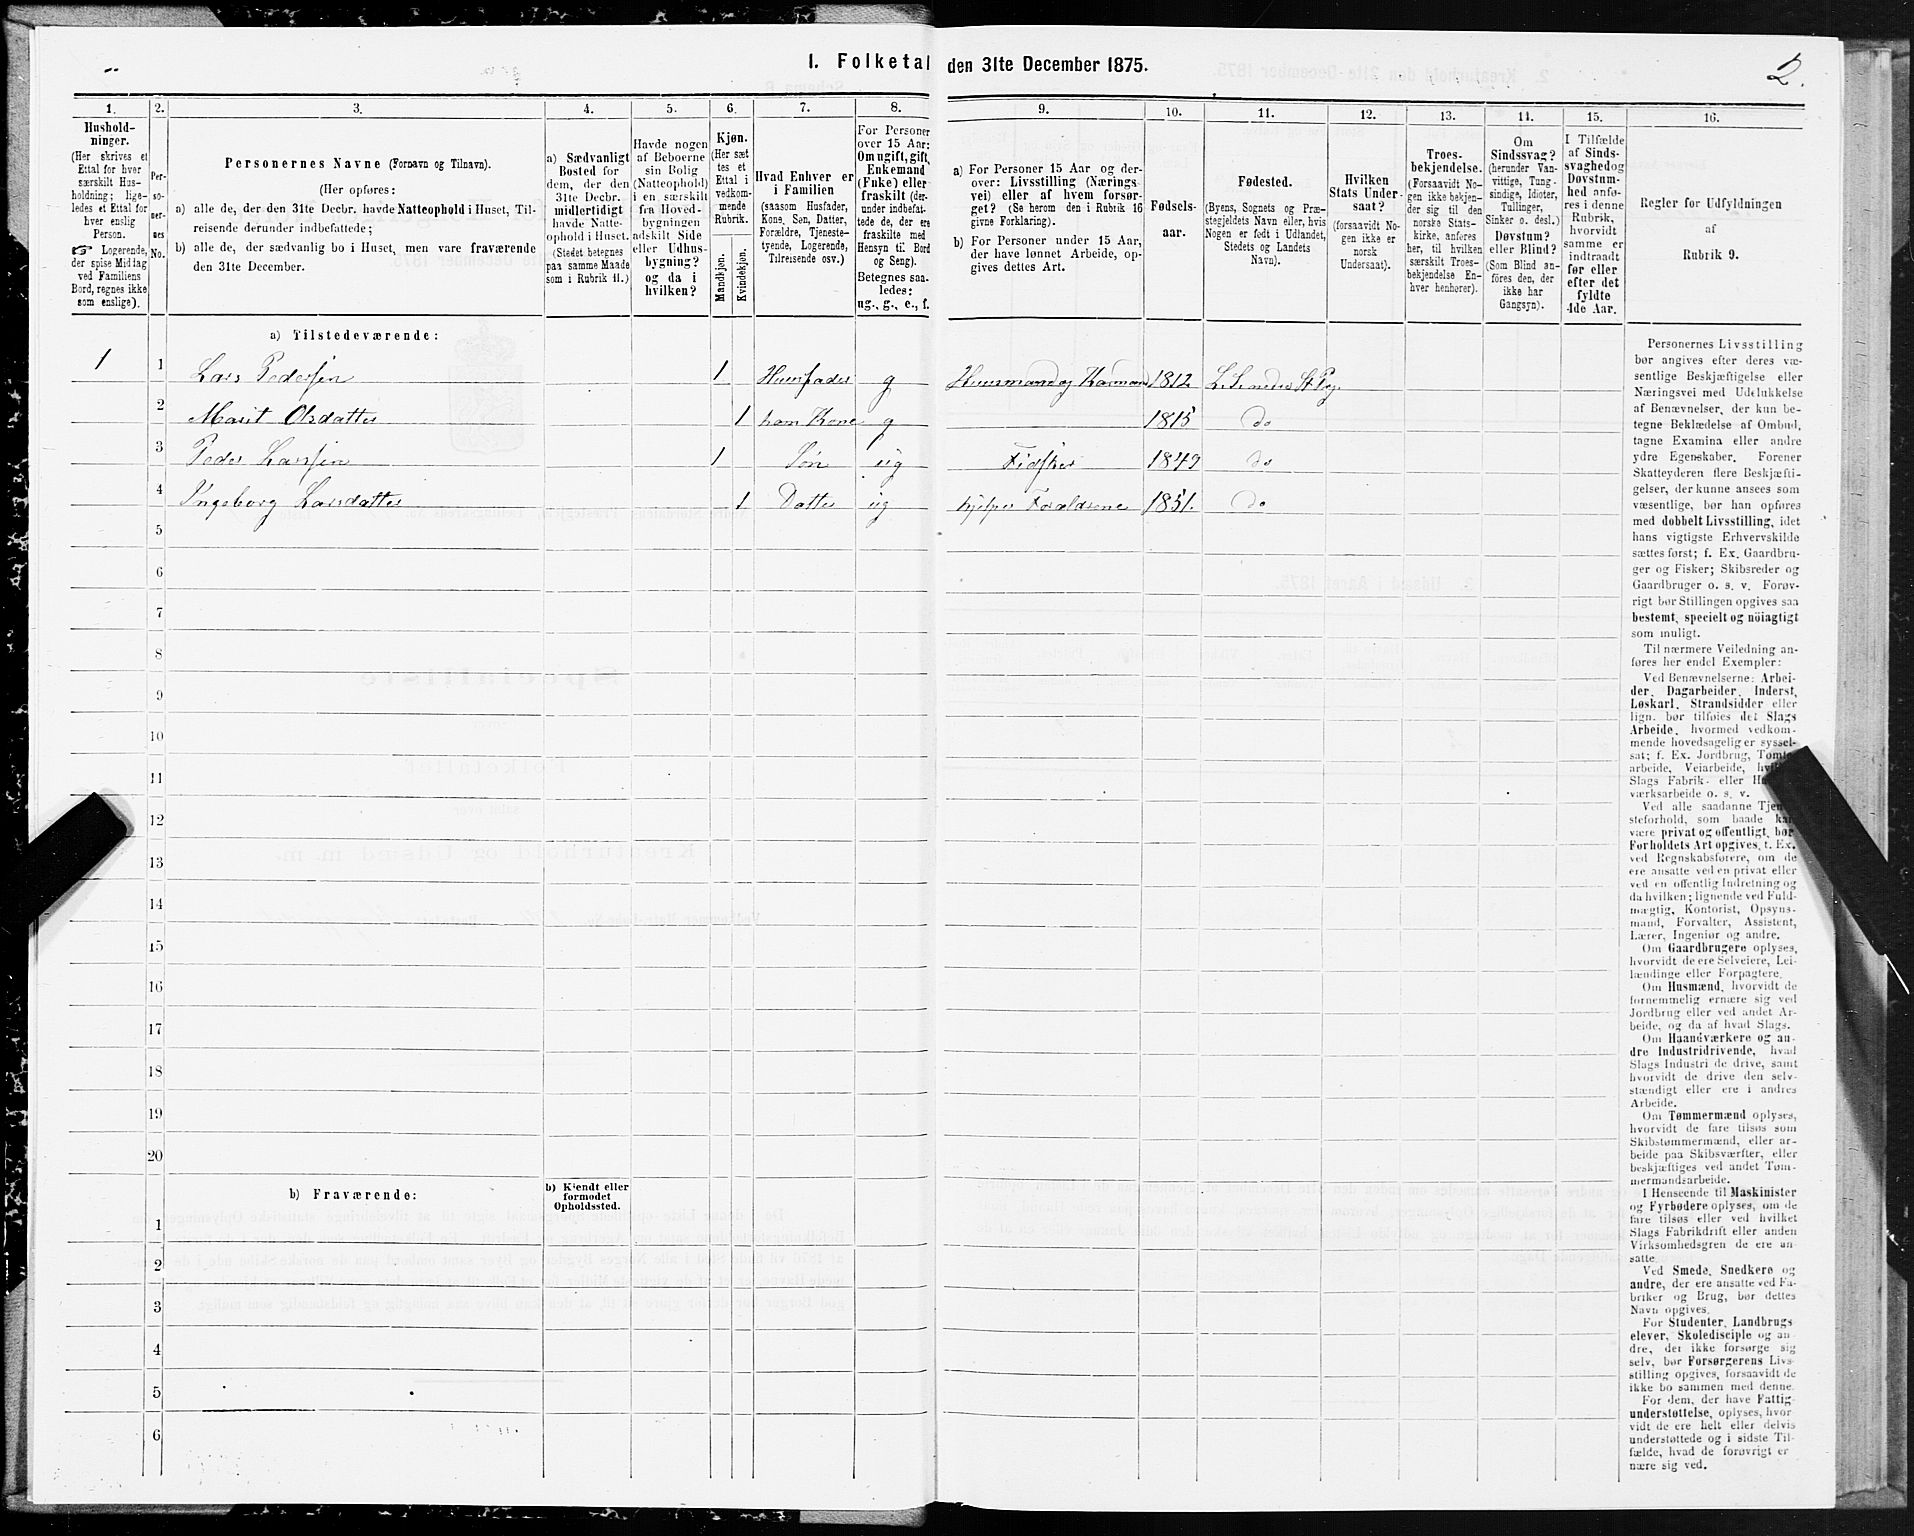 1. Folketal den 31te December 1875.
2.
1. 2. 3. 4. 5. 6. 7. 8. 9. 10. 11. 12. 13. 14. 15. 16.
Hushold-
ninger.
(Her skrives et
Ettal for hver
særskilt Hus-
holdning; lige-
ledes et Ettal for
hver enslig
Person.
☞ Logerende,
der spise Middag
ved Familiens
Bord, regnes ikke
som enslige).
Per-
so-
ner-
nes
No.
Personernes Navne (Fornavn og Tilnavn).
(Her opføres:
a) alle de, der den 31te Decbr. havde Natteophold i Huset, Til-
reisende derunder indbefattede;
b) alle de, der sædvanlig bo i Huset, men vare fraværende
den 31te December.
a) Sædvanligt
Bosted for
dem, der den
31te Decbr.
midlertidigt
havde Natte-
ophold i Huset.
(Stedet betegnes
paa samme Maade
som i Rubrik 11.)
Havde nogen
af Beboerne
sin Bolig
(Natteophold)
i en særskilt
fra Hoved-
bygningen
adskilt Side
eller Udhus-
bygning?
og da i
hvilken?
Kjøn.
(Her sæt
tes et
Ettal i
vedkom-
mende
Rubrik.
Mandkjøn.
Kvindekjøn.
Hvad Enhver er
i Familien
(saasom Husfader,
Kone, Søn, Datter,
Forældre, Tjeneste-
tyende, Logerende,
Tilreisende osv.)
For Personer
over 15 Aar:
Om ugift, gift,
Enkemand
(Enke) eller
fraskilt (der-
under indbefat-
tede de, der ere
fraskilte med
Hensyn til Bord
og Seng).
Betegnes saa-
ledes:
ug., g., e., f.
a) For Personer 15 Aar og der-
over: Livsstilling (Nærings-
vei) eller af hvem forsør-
get? (Se herom den i Rubrik 16
givne Forklaring).
b) For Personer under 15 Aar,
der have lønnet Arbeide, op-
gives dettes Art.
Fødsels-
aar.
Fødested.
(Byens, Sognets og Præ-
stegjeldets Navn eller, hvis
Nogen er født i Udlandet,
Stedets og Landets
Navn).
Hvilken
Stats Under-
saat?
(forsaavidt No-
gen ikke er
norsk
Undersaat).
Troes-
bekjendelse.
(Forsaavidt No-
gen ikke bekjen-
der sig til den
norske Stats-
kirke, anføres
her, til hvilken
særskilt Troes-
bekjendelse En-
hver henhører).
Om
Sindssvag?
(herunder Van-
vittige, Tung-
sindige, Idioter,
Tullinger,
Sinker o. desl.)
Døvstum?
eller Blind?
(Som Blind an-
føres den, der
ikke har
Gangsyn).
I Tilfælde
af Sinds-
svaghed og
Døvstum-
hed anfø-
res i denne
Rubrik,
hvorvidt
samme er
indtraadt
før eller
efter det
fyldte
4de Aar.
Regler for Udfyldningen
af
Rubrik 9.
a) Tilstedeværende:
1 1 Lars Pedersen 1 Huusfader g Huusmand og Kaarmand 1812
2 Marit Olsdatter 1 hans Kone g 1815 do
3 Peder Larssen 1 Søn ug Fidsker 1849 do
4 Ingeborg Larsdatter 1 Datter ug hjelper Forældrene 1851. do
5
6
7
8
9
10
11
12
13
14
15
16
17
18
19
20
b) Fraværende:
b) Kjendt eller
formodet
Opholdssted.
1
2
3
4
5
6
Personernes Livsstilling
bør angives efter deres væ-
sentlige Beskjæftigelse eller
Næringsvei med Udelukkelse
af Benævnelser, der kun be-
tegne Beklædelse af Ombud,
tagne Examina eller andre
ydre Egenskaber. Forener
Skatteyderen flere Beskjæfti-
gelser, der kunne ansees som
væsentlige, bør han opføres
med dobbelt Livsstilling, idet
hans vigtigste Erhvervskilde
sættes først; f. Ex. Gaardbru-
ger og Fisker; Skibsreder og
Gaardbruger o. s. v. Forøv-
rigt bør Stillingen opgives saa
bestemt, specielt og nöiagtigt
som muligt.
Til nærmere Veiledning an-
føres her endel Exempler:
Ved Benævnelserne: Arbei-
der, Dagarbeider, Inderst,
Løskarl, Strandsidder eller
lign. bør tilføies det Slags
Arbeide, hvormed vedkom-
mende hovedsagelig er syssel-
sat; f. Ex. Jordbrug, Tømte-
arbeide, Veiarbeide,
Slags Fabrik- eller
værksarbeide o. s. v.
Ved alle saadanne
steforhold, som baade
være privat og offentligt, bør
Forholdets Art opgives, f. Ex.
ved Regnskabsførere, om de
ere ansatte ved en privat eller
ved en offentlig Indretning og
da hvilken; lignende ved Fuld-
mægtig, Kontorist, Opsyns-
mand, Forvalter, Assistent,
Lærer, Ingeniør og andre.
Om Gaardbrugere oplyses,
hvorvidt de ere Selveiere, Lei-
lændinge eller Forpagtere.
Om Husmænd, hvorvidt de
fornemmelig ernære sig ved
Jordbrug eller ved andet Ar-
beide, og da af hvad Slags.
Om Haandværkere og an-
dre Industridrivende, hvad
Slags Industri de drive, samt
hvorvidt de drive den selv-
stændigt eller ere i andres
Arbeide.
Om Tømmermænd oplyses,
hvorvidt de fare tilsøs som
Skibstømmermænd, eller ar-
beide paa Skibsværfter, eller
beskjæftiges ved andet Tøm-
mermandsarbeide.
I Henseende til Maskinister
og Fyrbødere oplyses, om de
fare tilsøs eller ved hvilket
Slags Fabrikdrift eller anden
Virksomhedsgren de ere an-
satte.
Ved Smede, Snedkere og
andre, der ere ansatte ved Fa-
briker og Brug, bør dettes
Navn opgives.
For Studenter, Landbrugs-
elever, Skoledisciple og an-
dre, der ikke forsørge sig
selv, bør Forsørgerens Livs-
stilling opgives, forsaavidt de
ikke bo sammen med denne.
For dem, der have Fattig-
understøttelse, oplyses, hvor-
vidt de ere helt eller delvis
understøttede og i sidste Til-
fælde, hvad de forøvrigt er-
nære sig ved.